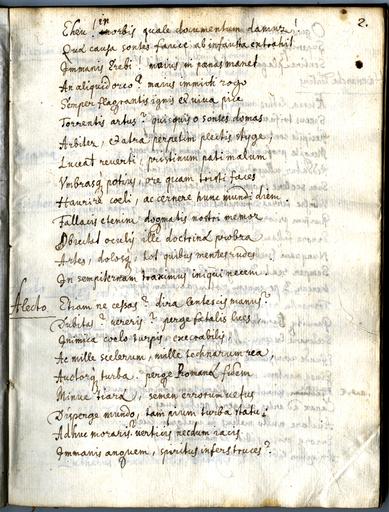 2.
Eheu! in orbis quale documentum damur!
Qua causa sontes fauce ab infausta entrahit
Immanis Erebi? maius in pœnas manet
An aliquid orco? maius immiti rogo
Semper flagrantis ignis ex viva
Torrentis artus? quisquis o sontes domas
Arbiter, et atra perpetim plectis styge,
Liceat reverti, pristinum pati malum
Vmbrasq potius, ore quam tristi faces
Haurire coeli, ac cernere hunc mundi diem.
Fallacis etenim dogmatis nostri memor
Obiectat oculis ille doctrinæ probra
Artes, dolosq, tot quibus mentes rudes
In sempiternam traximus iniqui necem.
Alecto. Etiam ne cessas? dira lentescis manus?
Dubitas? vereris? perge fatalis lues
Inimica coelo turpis, execrabilis,
Ac mille scelerum, mille technarum rea,
Auctorq turba. perge Romanâ fidem
Minue tiarâ, semen errorum vetus
Disperge mundo, tam pium turba statum
Adhuc moraris? verticis necdum iacis
Immanis anguem, spiritus infers truces?